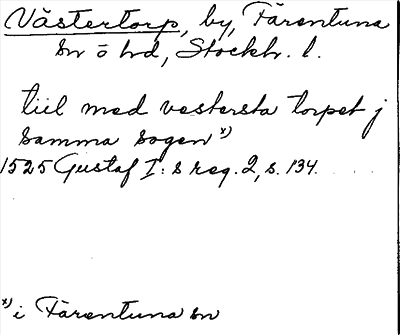 Västertorp, by, Färentuna
sn o hd, Stockh. l.
tiil med vestersta torpet j
samma sogen x)
1525 Gustaf I:s reg. 2, s. 134.
x) i Färentuna sn